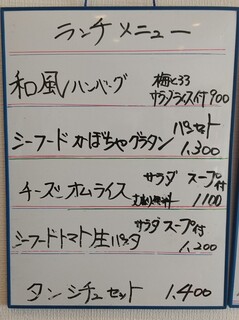 ランチメニュー
和風ハンバーグ 梅じそ
サラダライス付 900
シーフードかぼちゃグラタン パンセット
1,300
チーズオムライス サラダ スープ付
大盛り無料 1100
シーフードトマト生パスタ サラダスープ付
1,200
タンシチューセット 1,400